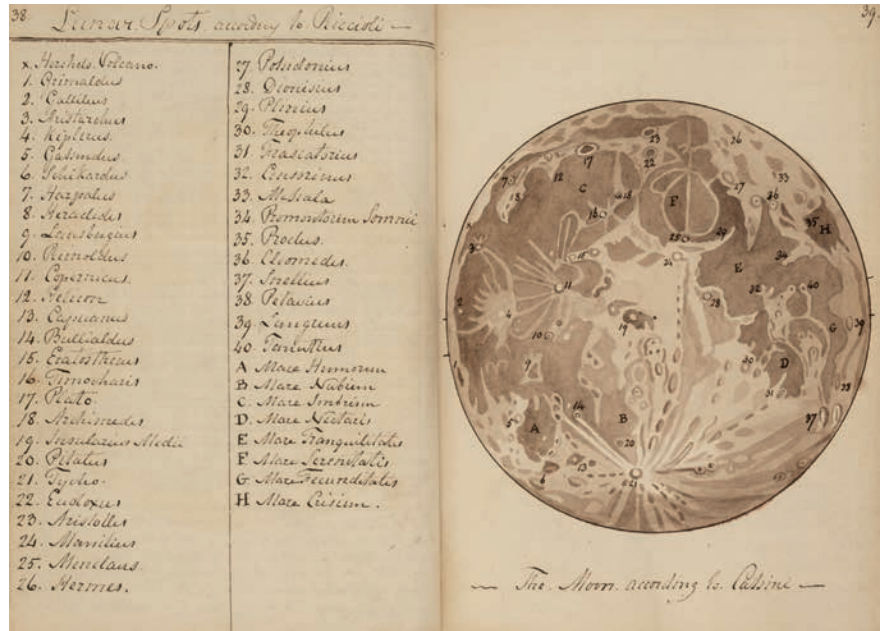 38
Lunar Spots according to Riccioli
x. Herchels Volcano.
1. Grimaldus
2. Gallileus
3. Aristarchus
4. Keplerus
5. Gassendus
6. Schikardus
7. Harpalus
8. Heraclides
9. Lansbergius
10. Reinoldus
11. Copernicus
12. Helicon
13. Capuanus
14. Bullialdus
15. Eratosthenes
16. Timocharis
17. Plato
18. Archimedes
19. Insularius Medii
20. Pitatus
21. Tycho
22. Eudoxus
23. Aristolles
24. Manilius
25. Menelaus
26. Hermes.
27. Posidonius
28. Dionisius
29. Plinius
30. Theophilus
31. Frascatorius
32. Censorinus
33. Messala
34. Promontorium Somnii
35. Proclus
36. Cleomedes
37. Snellius
38. Petavius
39. Langrenus
40. Taruntius
A Mare Humorum
B Mare Nubium
C Mare Imbrium
D Mare Nectaris
E Mare Tranquilitatis
F Mare Serenitatis
G Mare Fecunditatis
H Mare Crisium.
39.
The Moon according to Cassini